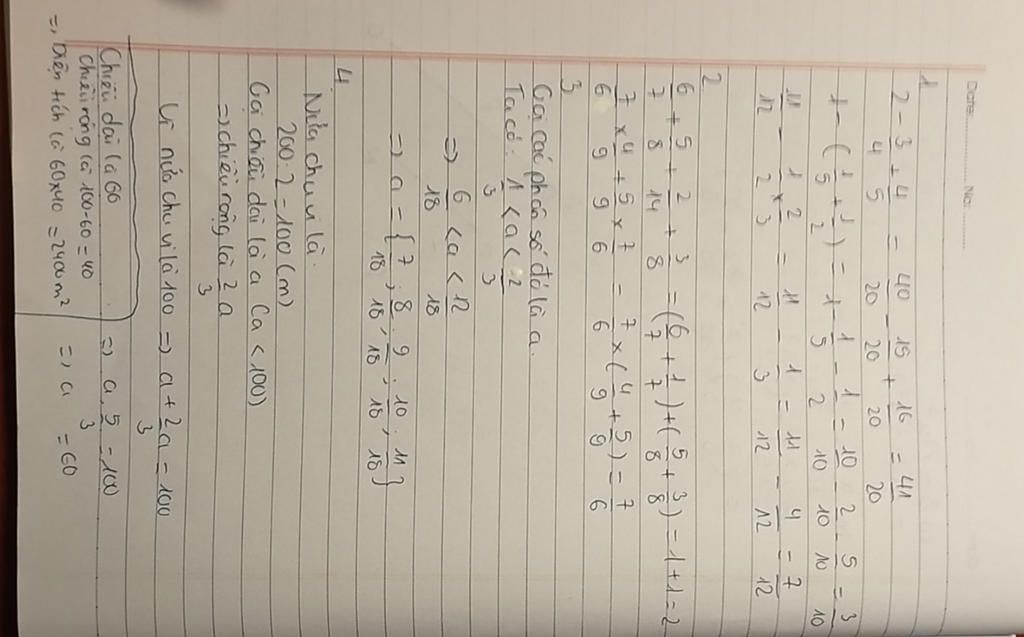 Date: ........... No: ...........
1
2 - 3/4 + 4/5 = 40/20 - 15/20 + 16/20 = 41/20
1 - (1/5 + 1/2) = 1 - 1/5 - 1/2 = 10/10 - 2/10 - 5/10 = 3/10
11/12 - 1/2 x 2/3 = 11/12 - 1/3 = 11/12 - 4/12 = 7/12
2
6/7 + 5/8 + 2/14 + 3/8 = (6/7 + 1/7) + (5/8 + 3/8) = 1 + 1 = 2
7/6 x 4/9 + 5/9 x 7/6 = 7/6 x (4/9 + 5/9) = 7/6
3
Gọi các phân số đó là a.
Ta có: 1/3 < a < 2/3
=> 6/18 < a < 12/18
=> a = {7/18, 8/18, 9/18, 10/18, 11/18}
4
Nửa chu vi là.
200 : 2 = 100 (m)
Gọi chiều dài là a (a < 100)
=> chiều rộng là 2/3 a
Vì nửa chu vi là 100 => a + 2/3 a = 100
=> a . 5/3 = 100
=> a = 60
Chiều dài là 60
chiều rộng là 100 - 60 = 40
=> Diện tích là 60x40 = 2400m²